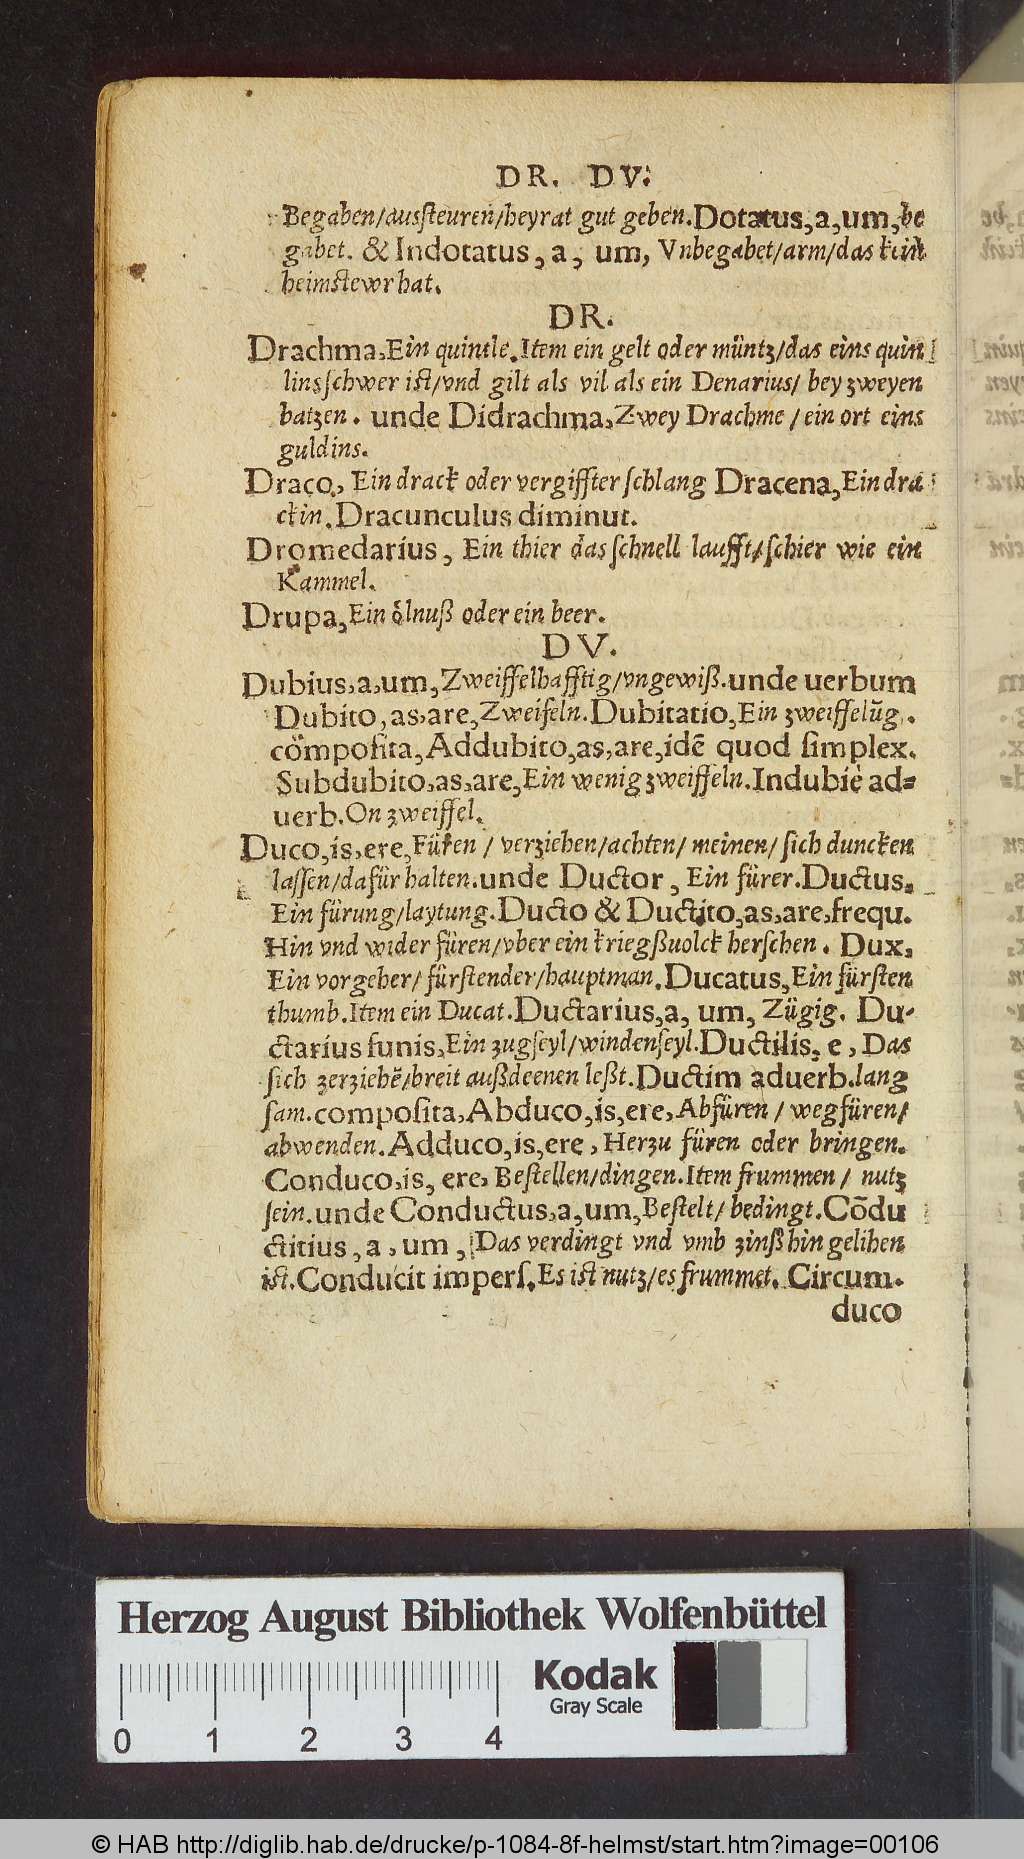 DR. DV.
Begaben/aussteuren/heyrat gut geben. Dotatus, a, um, be
gabet. & Indotatus, a, um, Vnbegabet/arm/das kein
heimstewr hat.
DR.
Drachma, Ein quintle. Item ein gelt oder müntz/das eins quin
lins schwer ist/vnd gilt als vil als ein Denarius/ bey zweyen
batzen. unde Didrachma, Zwey Drachme / ein ort eins
guldins.
Draco, Ein drack oder vergiffter schlang Dracena, Ein dra
ckin. Dracunculus diminut.
Dromedarius, Ein thier das schnell laufft/schier wie ein
Kammel.
Drupa, Ein ölnuß oder ein beer.
DV.
Dubius, a, um, Zweiffelhafftig/vngewiß. unde uerbum
Dubito, as, are, Zweifeln. Dubitatio, Ein zweiffelũg.
cõposita, Addubito, as, are, idẽ quod simplex.
Subdubito, as, are, Ein wenig zweiffeln. Indubiè ad=
uerb. On zweiffel.
Duco, is, ere, Füren / verziehen/achten/ meinen/ sich duncken
lassen/dafür halten. unde Ductor, Ein fürer. Ductus,
Ein fürung/laytung. Ducto & Ductito, as, are, frequ.
Hin vnd wider füren/vber ein kriegßuolck herschen. Dux,
Ein vorgeher/ fürstender/hauptman. Ducatus, Ein fürsten
thumb. Item ein Ducat. Ductarius, a, um, Zügig. Du-
ctarius funis, Ein zugseyl/windenseyl. Ductilis, e, Das
sich zerziehẽ/breit außdeenen leßt. Ductim aduerb. lang
sam. composita, Abduco, is, ere, Abfüren / wegfüren/
abwenden. Adduco, is, ere, Herzu füren oder bringen.
Conduco, is, ere, Bestellen/dingen. Item frummen / nutz
sein. unde Conductus, a, um, Bestelt/ bedingt. Cõdu
ctitius, a, um, Das verdingt vnd vmb zinß hin gelihen
ist. Conducit impers. Es ist nutz/es frummet. Circum-
duco
Herzog August Bibliothek Wolfenbüttel
Kodak
Gray Scale
0 1 2 3 4
© HAB http://diglib.hab.de/drucke/p-1084-8f-helmst/start.htm?image=00106